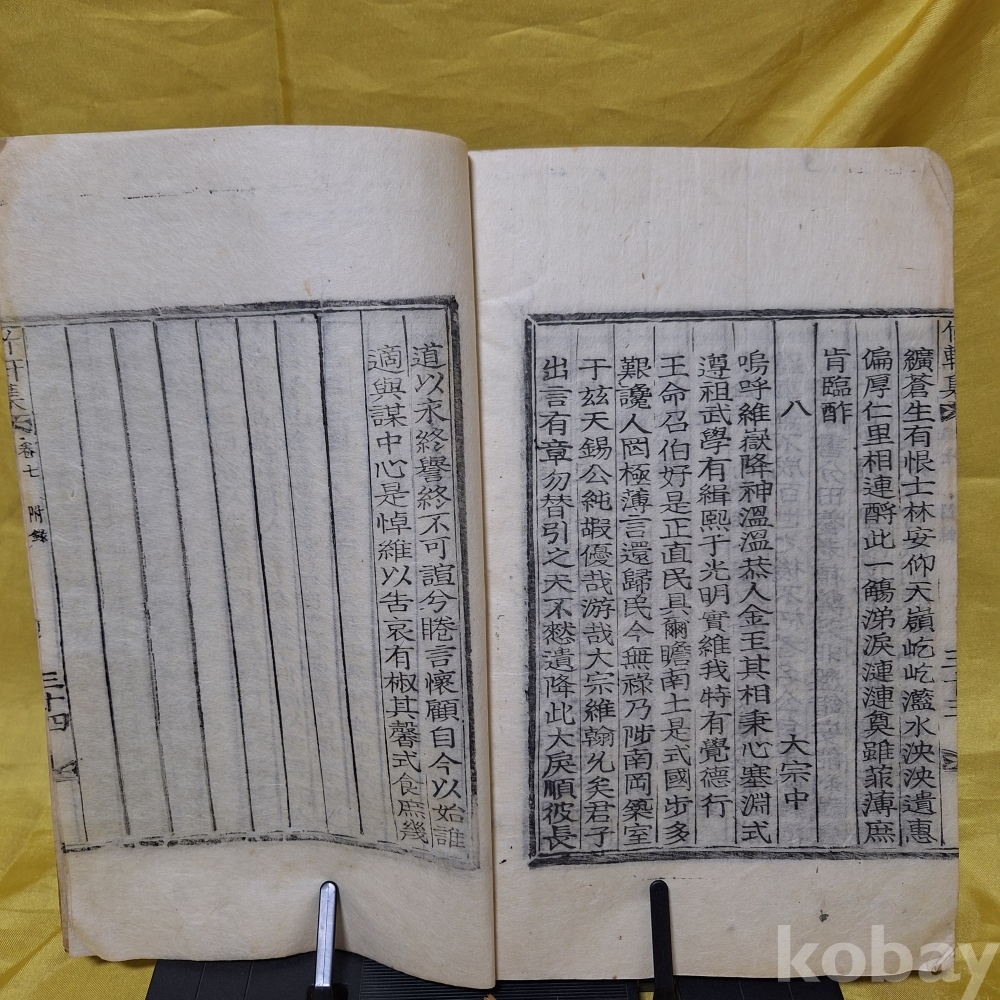 纊蒼生有恨士林安仰天嶺屹屹灆水泱泱遺惠
偏厚仁里相連酹此一觴涕淚漣漣奠雖菲薄庶
肯臨酢
八 大宗中
嗚呼維嶽降神溫溫恭人金玉其相秉心塞淵式
遵祖武學有緝熙于光明實維我特有覺德行
王命召伯好是正直民具爾瞻南土是式國步多
艱讒人罔極薄言還歸民今無祿乃陟南岡築室
于玆天錫公純嘏優哉游哉大宗維翰允矣君子
出言有章勿替引之天不憖遺降此大戾順彼長
道以永終譽終不可諠兮睠言懷顧自今以始誰
適與謀中心是悼維以告哀有椒其馨式食庶幾
卷七 附錄
三十四
kobay